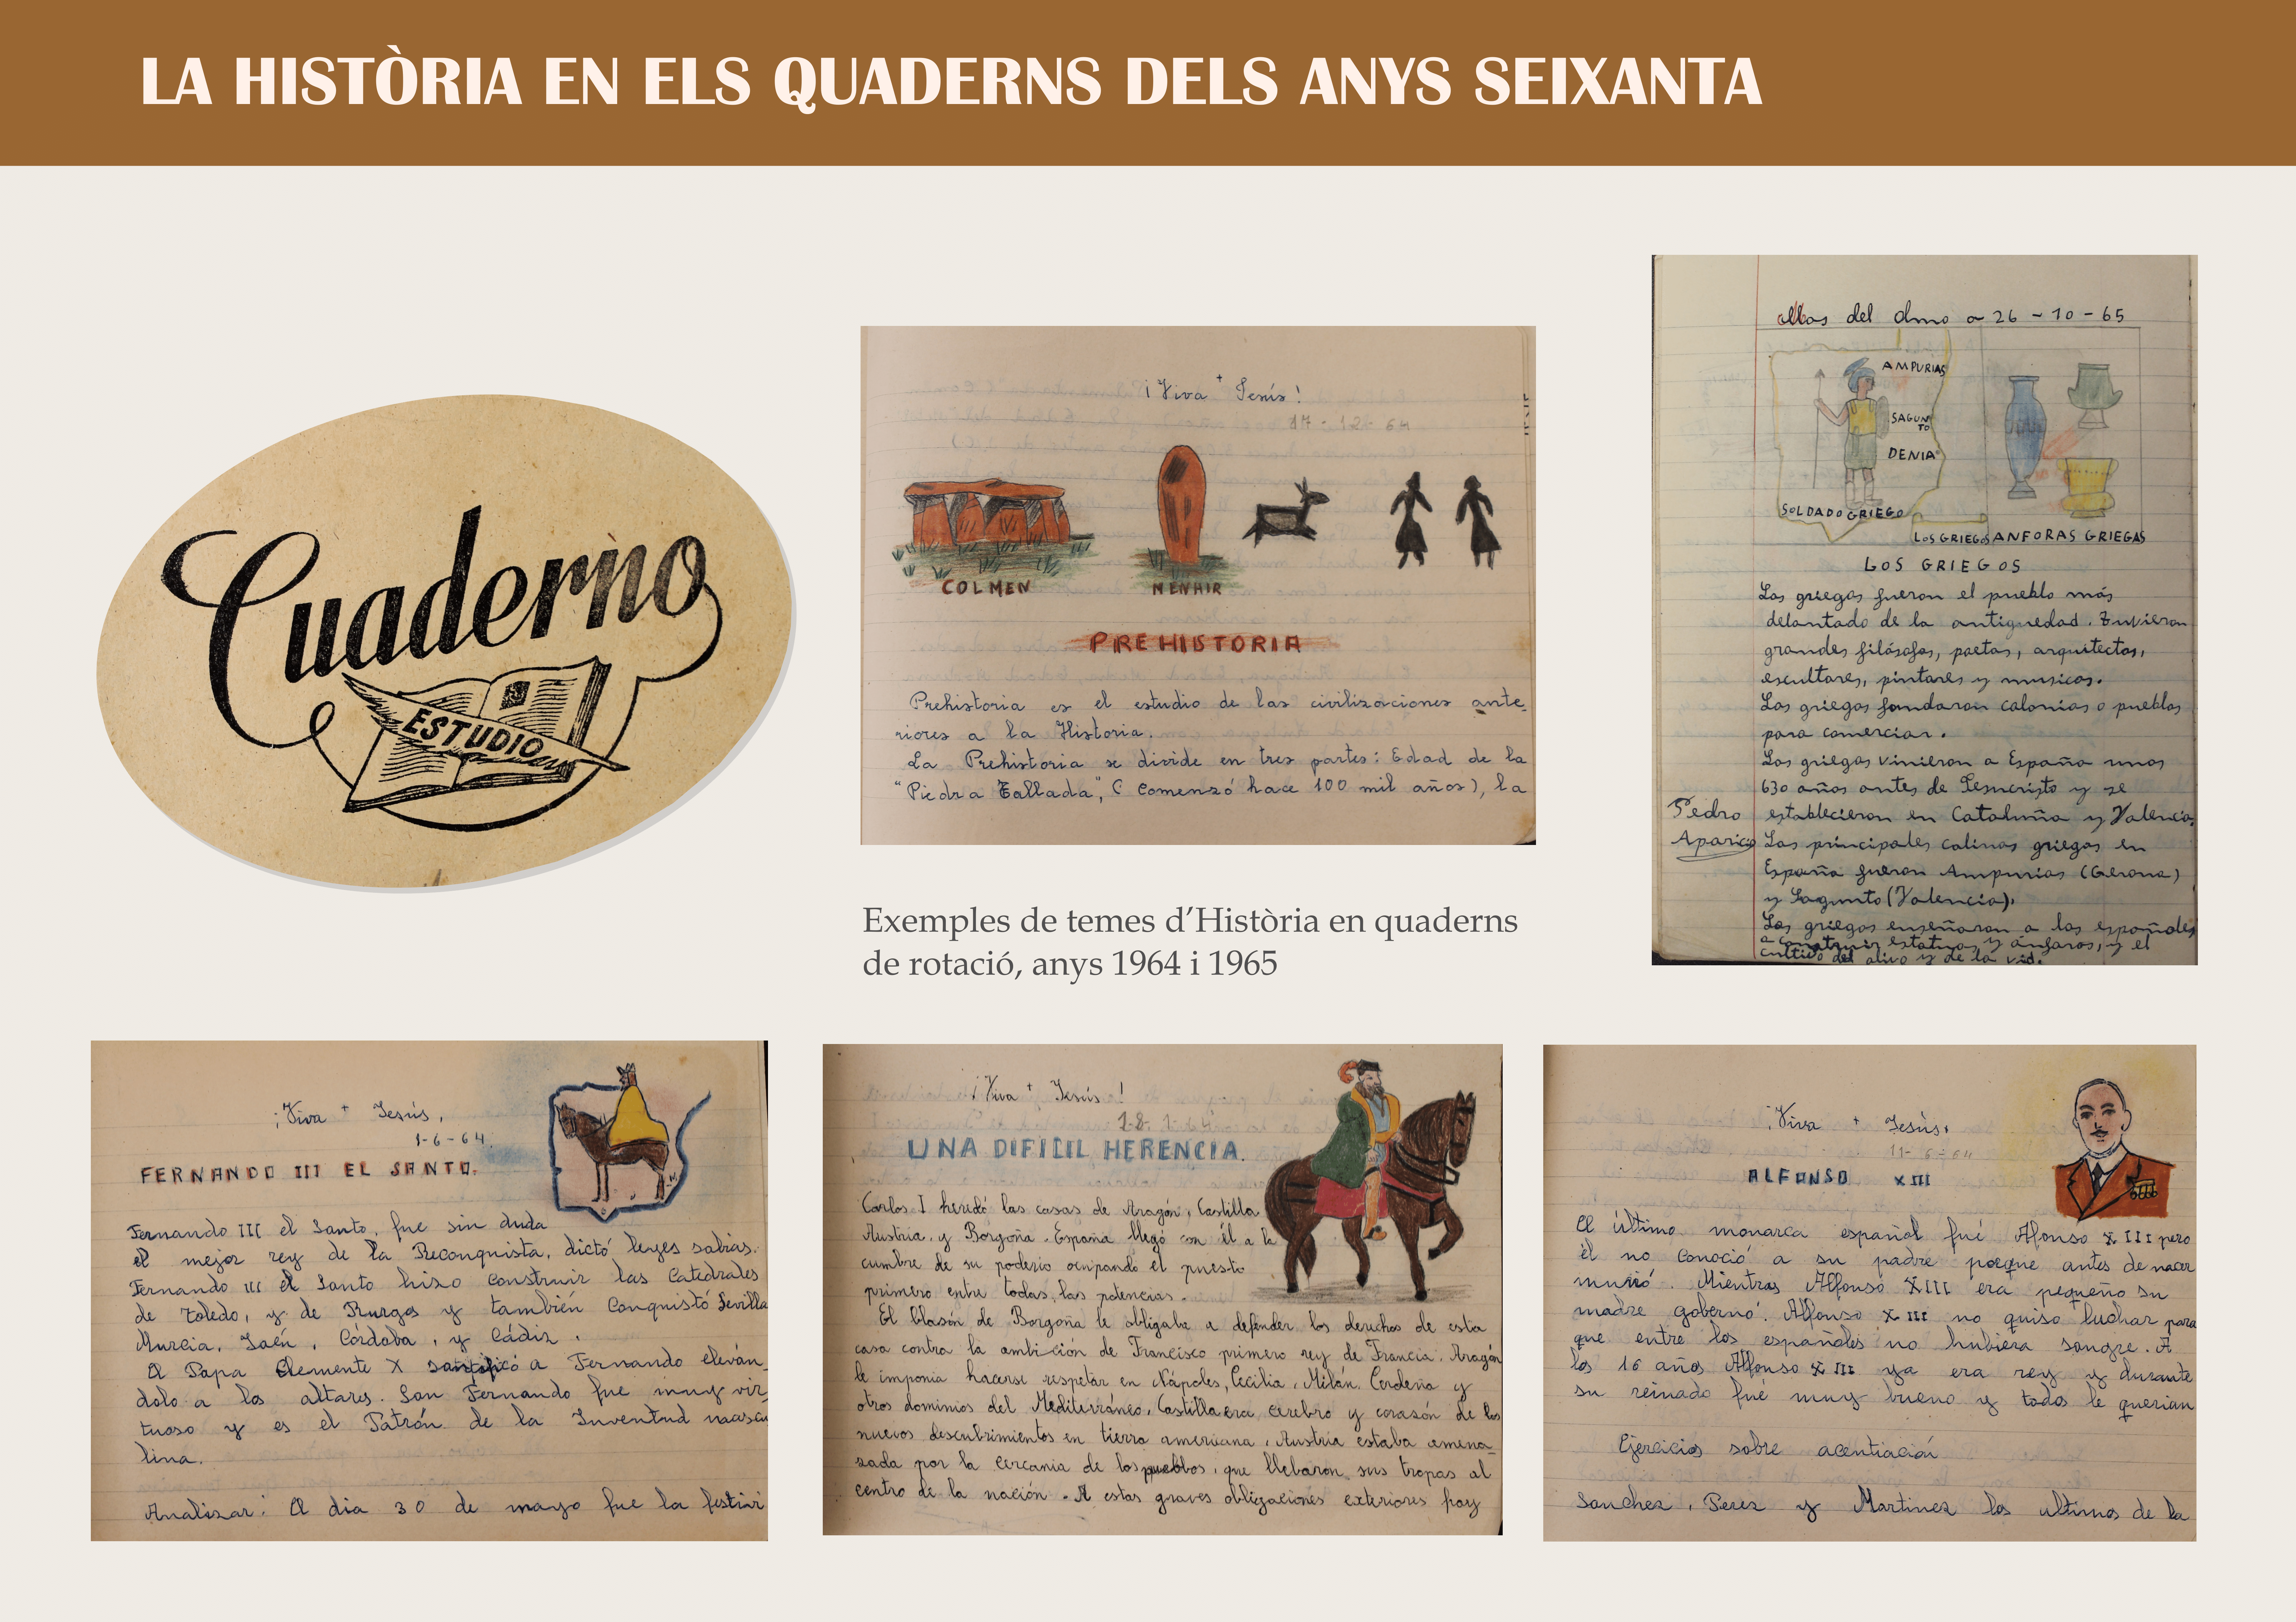 LA HISTÒRIA EN ELS QUADERNS DELS ANYS SEIXANTA
Cuaderno
ESTUDIO
¡Viva + Jesús!
17-12-64
COLMEN
MENHIR
PREHISTORIA
Prehistoria es el estudio de las civilizaciones ante-
riores a la Historia.
La Prehistoria se divide en tres partes: Edad de la
"Piedra Tallada", (Comenzó hace 100 mil años), la
Exemples de temes d'Història en quaderns
de rotació, anys 1964 i 1965
del olmo a 26-10-65
AMPURIAS
SAGUN
TO
DENIA
SOLDADO GRIEGO
LOS GRIEGOS
ANFORAS GRIEGAS
LOS GRIEGOS
Los griegos fueron el pueblo más
delantado de la antiguedad. Tuvieron
grandes filósofos, poetas, arquitectos,
escultores, pintores y musicos.
Los griegos fondaron colonias o pueblos
para comerciar.
Los griegos vinieron a España unos
630 años antes de Jesucristo y se
establecieron en Cataluña y Valencia.
Pedro
Aparicio
Los principales colinas griegas en
España fueron Ampurias (Gerona)
y Sagunto (Valencia).
Los griegos enseñaron a los españoles
a construir estatuas y ánforas, y el
cultivo del olivo y de la vid.
¡Viva + Jesús,
1-6-64.
FERNANDO III EL SANTO.
Fernando III el Santo, fue sin duda
el mejor rey de la Reconquista, dictó leyes sabias.
Fernando III el Santo hizo construir las Catedrales
de Toledo, y de Burgos y también conquistó Sevilla
Murcia, Jaén, Córdoba, y Cádiz.
El Papa Clemente X santificó a Fernando eleván-
dolo a los altares. San Fernando fue muy vir-
tuoso y es el Patrón de la Juventud mascu
lina.
Analizar: El dia 30 de mayo fue la festivi
¡Viva + Jesús!
UNA DIFICIL HERENCIA.
Carlos I heredó las casas de Aragón, Castilla
Austria, y Borgoña. España llegó con él a la
cumbre de su poderío ocupando el puesto
primero entre todas las potencias.
El blasón de Borgoña le obligaba a defender los derechos de esta
casa contra la ambición de Francisco primero rey de Francia. Aragón
le imponia hacerse respetar en Nápoles, Cecilia, Milán. Cerdeña y
otros dominios del Mediterráneo, Castilla era cerebro y corazón de los
nuevos descubrimientos en tierra americana, Austria estaba amena-
zada por la cercania de los pueblos, que llebaron sus tropas al
centro de la nación. A estas graves obligaciones exteriores hay
¡Viva + Jesús!
11-6-64
ALFONSO XIII
El último monarca español fué Alfonso XIII pero
él no conoció a su padre porque antes de nacer
murió. Mientras Alfonso XIII era pequeño su
madre goberno. Alfonso XIII no quiso luchar para
que entre los españoles no hubiera sangre. A
los 16 años Alfonso XIII ya era rey y durante
su reinado fué muy bueno y todos le querian
Ejercicios sobre acentiación
Sanchez, Perez y Martinez los ultimos de la